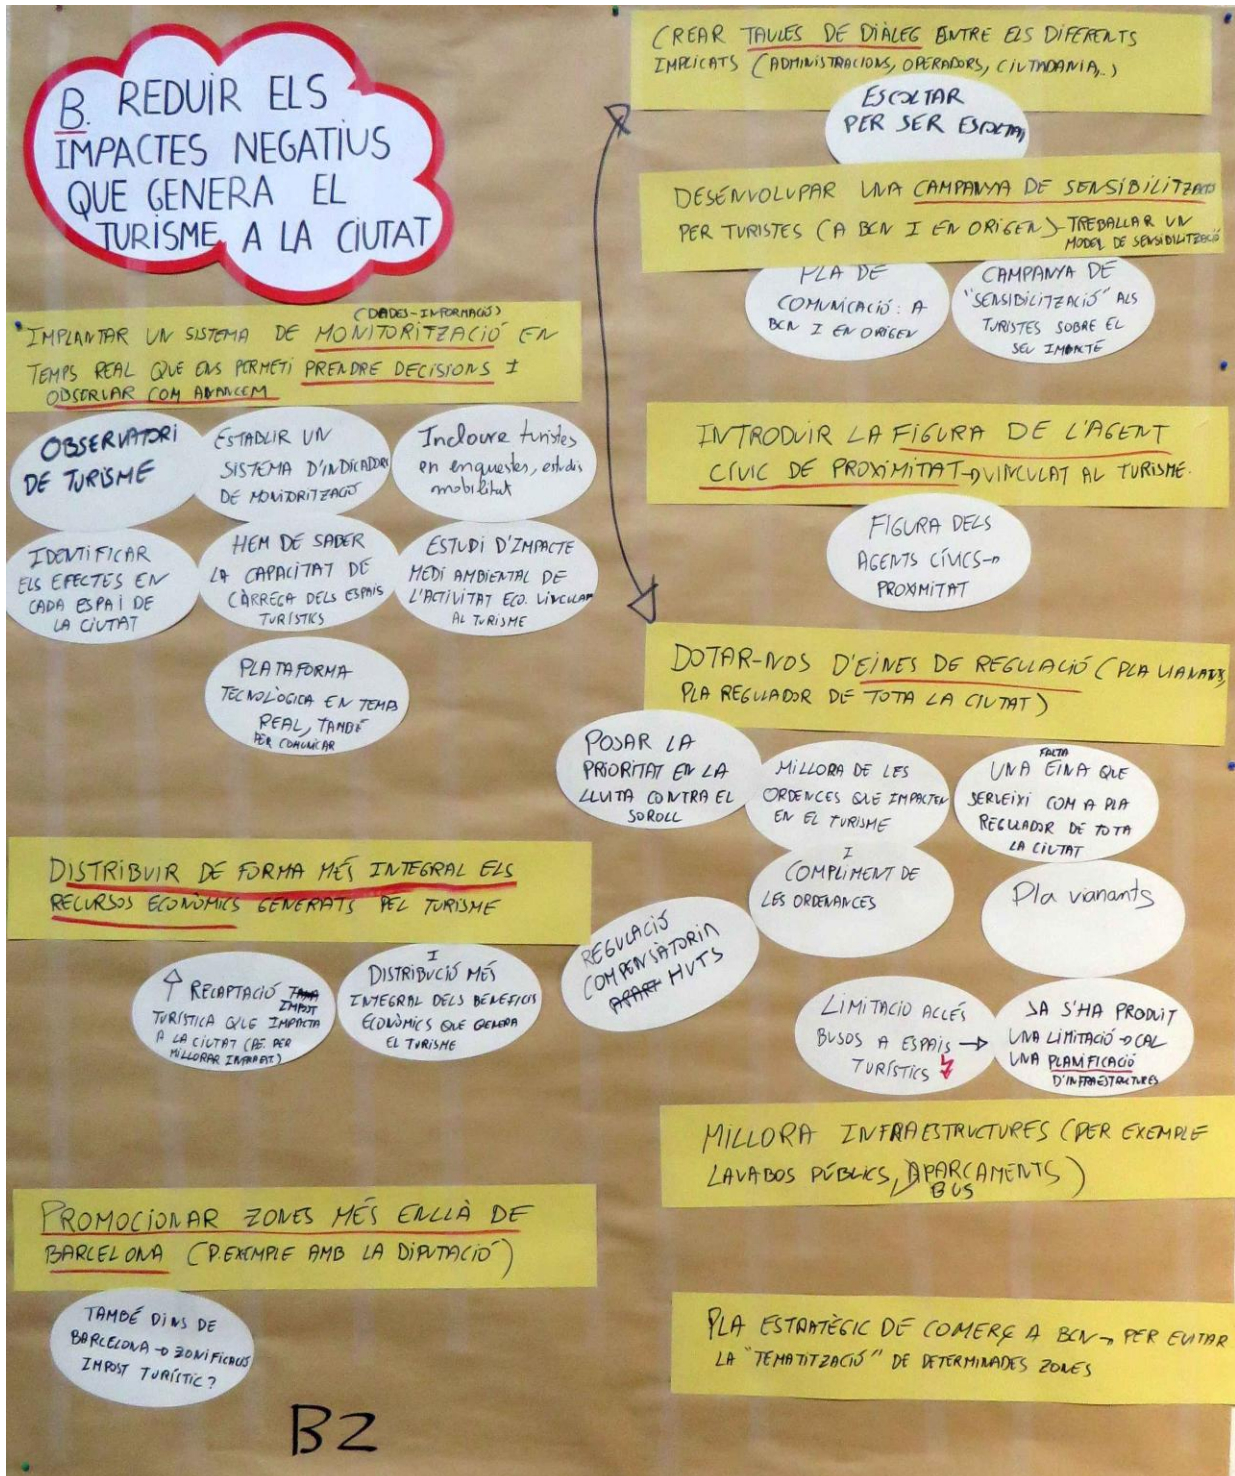 B. REDUIR ELS
IMPACTES NEGATIUS
QUE GENERA EL
TURISME A LA CIUTAT
(DADES-INFORMACIÓ)
IMPLANTAR UN SISTEMA DE MONITORITZACIÓ EN
TEMPS REAL QUE ENS PERMETI PRENDRE DECISIONS I
OBSERVAR COM AVANCEM
OBSERVATORI
DE TURISME
ESTABLIR UN
SISTEMA D'INDICADORS
DE MONITORITZACIÓ
Incloure turistes
en enquestes, estudis
mobilitat
IDENTIFICAR
ELS EFECTES EN
CADA ESPAI DE
LA CIUTAT
HEM DE SABER
LA CAPACITAT DE
CÀRREGA DELS ESPAIS
TURÍSTICS
ESTUDI D'IMPACTE
MEDI AMBIENTAL DE
L'ACTIVITAT ECO. VINCULADA
AL TURISME
PLATAFORMA
TECNOLÒGICA EN TEMPS
REAL, TAMBÉ
PER COMUNICAR
DISTRIBUIR DE FORMA MÉS INTEGRAL ELS
RECURSOS ECONÒMICS GENERATS PEL TURISME
↑ RECAPTACIÓ TAXA
IMPOST
TURÍSTICA QUE IMPACTA
A LA CIUTAT (P.E. PER
MILLORAR INFRAEST.)
I
DISTRIBUCIÓ MÉS
INTEGRAL DELS BENEFICIS
ECONÒMICS QUE GENERA
EL TURISME
PROMOCIONAR ZONES MÉS ENLLÀ DE
BARCELONA (P.EXEMPLE AMB LA DIPUTACIÓ)
TAMBÉ DINS DE
BARCELONA → ZONIFICACIÓ
IMPOST TURÍSTIC?
B2
CREAR TAULES DE DIÀLEG ENTRE ELS DIFERENTS
IMPLICATS (ADMINISTRACIONS, OPERADORS, CIUTADANIA,..)
ESCOLTAR
PER SER ESCOLTATS
DESENVOLUPAR UNA CAMPANYA DE SENSIBILITZACIÓ
PER TURISTES (A BCN I EN ORIGEN) - TREBALLAR UN
MODEL DE SENSIBILITZACIÓ
PLA DE
COMUNICACIÓ: A
BCN I EN ORIGEN
CAMPANYA DE
"SENSIBILITZACIÓ" ALS
TURISTES SOBRE EL
SEU IMPACTE
INTRODUIR LA FIGURA DE L'AGENT
CÍVIC DE PROXIMITAT → VINCULAT AL TURISME.
FIGURA DELS
AGENTS CÍVICS →
PROXIMITAT
DOTAR-NOS D'EINES DE REGULACIÓ (PLA VIANANTS,
PLA REGULADOR DE TOTA LA CIUTAT)
POSAR LA
PRIORITAT EN LA
LLUITA CONTRA EL
SOROLL
MILLORA DE LES
ORDENCES QUE IMPACTEN
EN EL TURISME
I
COMPLIMENT DE
LES ORDENANCES
FALTA
UNA EINA QUE
SERVEIXI COM A PLA
REGULADOR DE TOTA
LA CIUTAT
Pla vianants
REGULACIÓ
COMPENSATÒRIA
APART HUTS
LIMITACIO ACCÉS
BUSOS A ESPAIS →
TURÍSTICS
JA S'HA PRODUIT
UNA LIMITACIÓ → CAL
UNA PLANIFICACIÓ
D'INFRAESTRUCTURES
MILLORA INFRAESTRUCTURES (PER EXEMPLE
LAVABOS PÚBLICS, APARCAMENTS)
BUS
PLA ESTRATÈGIC DE COMERÇ A BCN → PER EVITAR
LA "TEMATITZACIÓ" DE DETERMINADES ZONES